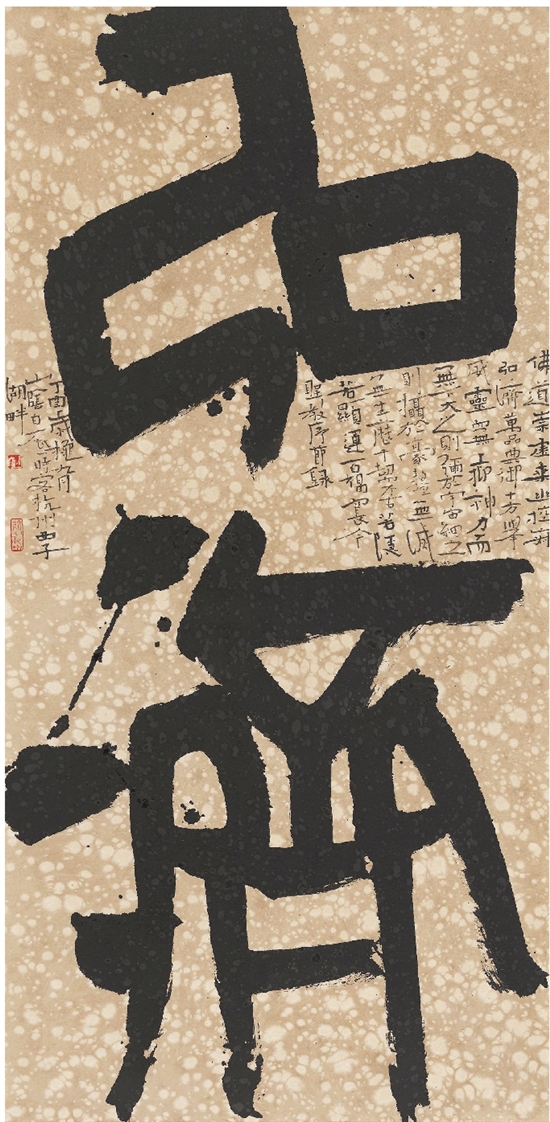 弘濟
佛道崇虛乘幽控寂
弘濟萬品典御十方舉
威靈無上抑神力而
無大之則彌於宇宙細之
則攝於毫釐無滅
無生歷千劫不古若隱
若顯運百福而長今
聖教序節錄
丁酉歲極月
山陰白砥時客杭州西子
湖畔